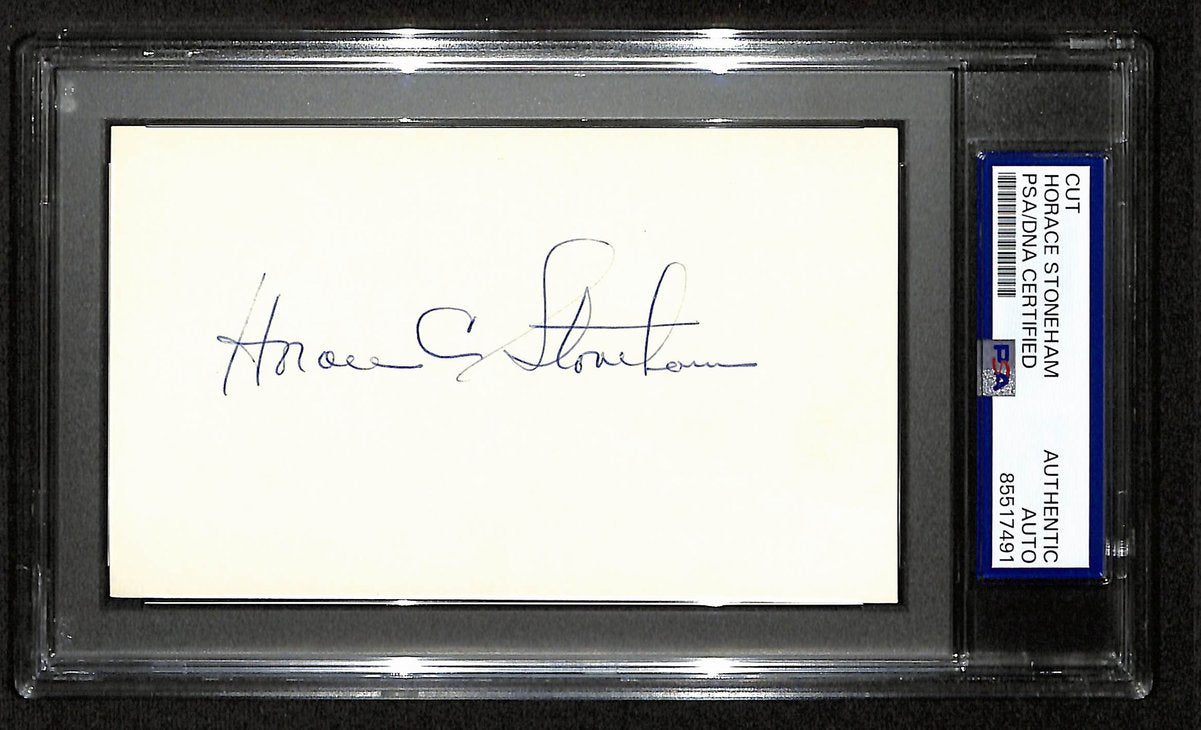 Horace C Stoneham
CUT
HORACE STONEHAM AUTHENTIC
PSA/DNA CERTIFIED AUTO
85517491
PSA